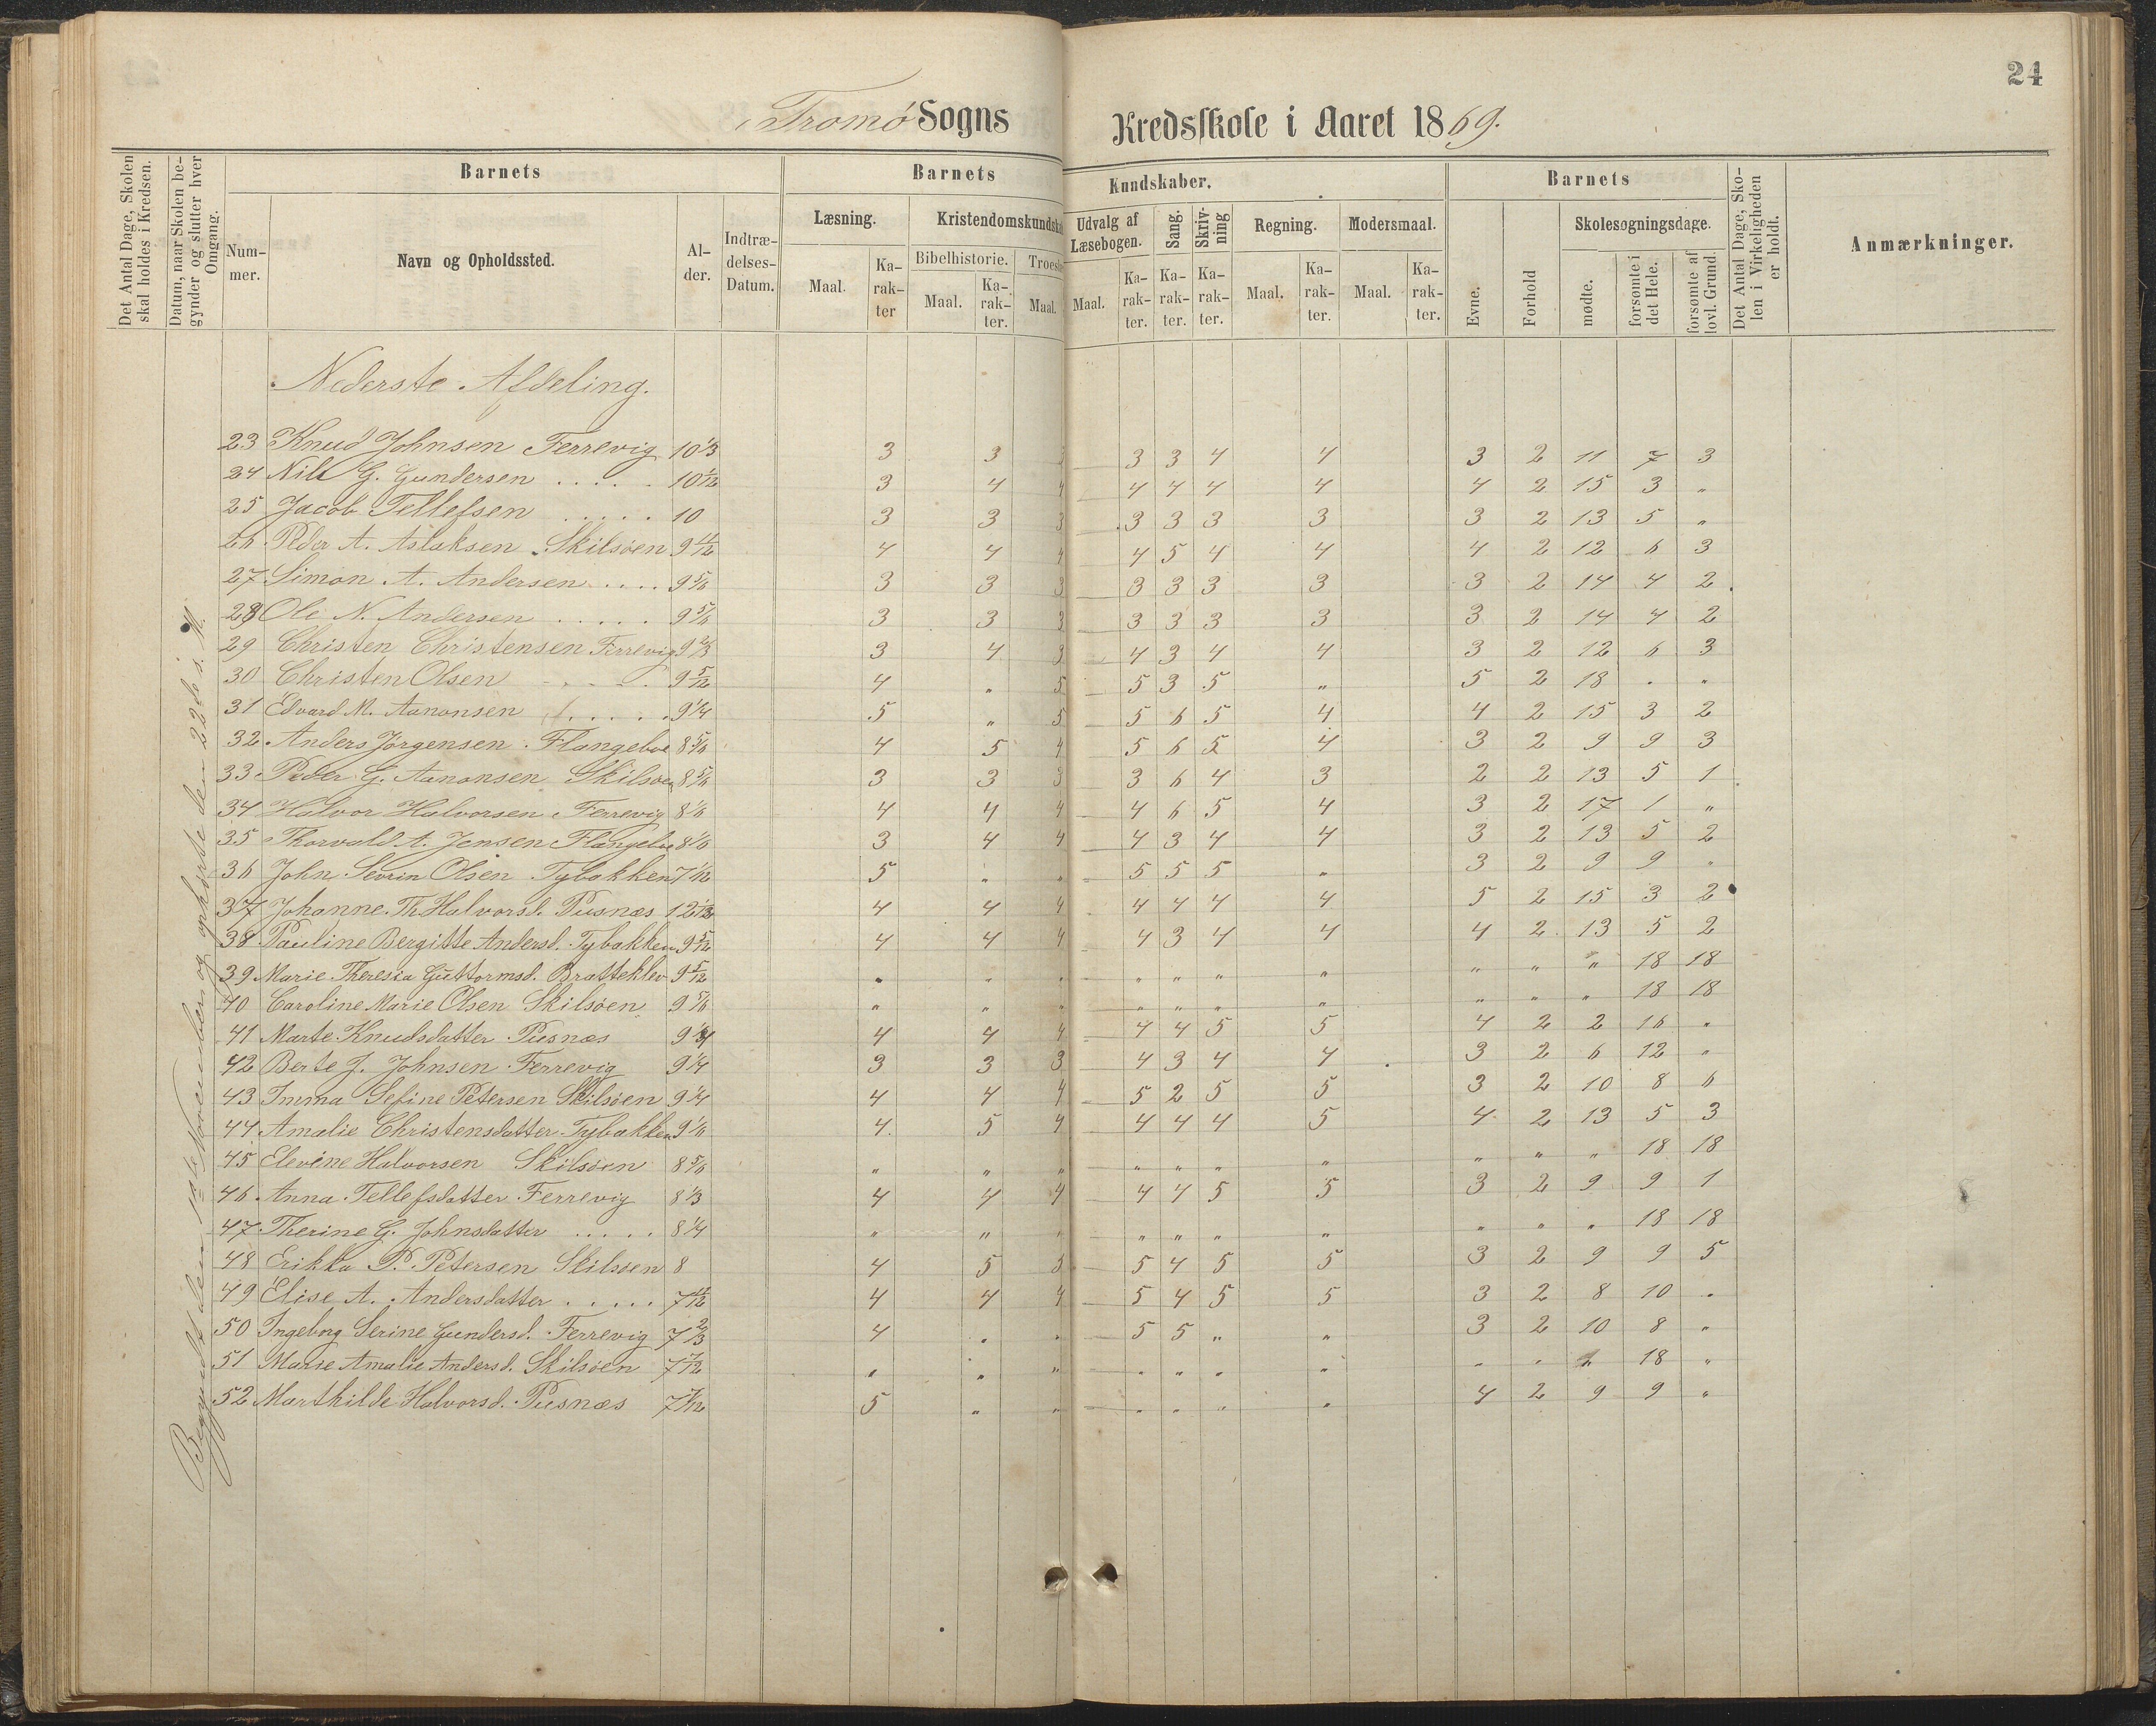 24
Tromø Sogns Kredsskole i Aaret 1869.
Det Antal Dage, Skolen skal holdes i Kredsen.
Datum, naar Skolen begynder og slutter hver Omgang.
Barnets
Nummer.
Navn og Opholdssted.
Alder.
Indtrædelses-Datum.
Barnets Kundskaber.
Læsning.
Maal. Karakter
Kristendomskundska
Bibelhistorie. Troeslæ
Maal. Karakter. Maal.
Udvalg af Læsebogen.
Maal. Karakter.
Sang. Karakter.
Skrivning Karakter.
Regning.
Maal. Karakter.
Modersmaal.
Maal. Karakter.
Barnets
Evne. Forhold
Skolesøgningsdage.
mødte. forsømte i det Hele. forsømte af lovl. Grund.
Det Antal Dage, Skolen i Virkeligheden er holdt.
Anmærkninger.
Begyndt den 1ste November og ophørte den 22de s. M.
Nederste Afdeling.
23 Knud Johnsen Ferrevig 10 1/3 3 3 3 3 3 4 4 3 2 11 7 3
24 Nils G. Gundersen . . . . . 10 1/12 3 4 4 4 4 4 4 4 2 15 3 "
25 Jacob Tellefsen . . . . . 10 3 3 3 3 3 3 3 3 2 13 5 "
26 Peder A. Aslaksen Skilsøen 9 11/12 4 4 4 4 5 4 4 4 2 12 6 3
27 Simon A. Andersen . . . . 9 5/6 3 3 3 3 3 3 3 3 2 14 4 2
28 Ole N. Andersen . . . . . 9 5/6 3 3 3 3 3 3 3 3 2 14 4 2
29 Christen Christensen Ferrevig 9 2/3 3 4 3 4 3 4 4 3 2 12 6 3
30 Christen Olsen . . . . 9 5/12 4 " 5 5 3 5 " 5 2 18 . "
31 Edvard M. Aanonsen . . . . . 9 1/4 5 " 5 5 6 5 4 4 2 15 3 2
32 Anders Jørgensen Flangeboe 8 5/6 4 5 4 5 6 5 4 3 2 9 9 3
33 Peder G. Aanonsen Skilsøen 8 5/6 3 3 3 3 6 4 3 2 2 13 5 1
34 Halvor Halvorsen Ferrevig 8 1/6 4 4 4 4 6 5 4 3 2 17 1 "
35 Thorvald A. Jensen Flangeboe 8 1/6 3 4 4 4 3 4 4 3 2 13 5 2
36 John Sevrin Olsen Tybakken 7 1/12 5 " " 5 5 5 " 3 2 9 9 "
37 Johanne Th. Halvorsd. Pusnæs 12 4 4 4 4 4 4 4 5 2 15 3 2
38 Pauline Bergitte Andersd. Tybakken 9 5/12 4 4 4 4 3 4 4 4 2 13 5 2
39 Marie Theresia Guttormsd. Bratteklev 9 5/12 " " " " " " " " " " 18 18
40 Caroline Marie Olsen Skilsøen 9 5/6 " " " " " " " " " " 18 18
41 Marte Knudsdatter Pusnæs 9 4 4 4 4 4 5 5 4 2 2 16 "
42 Berte J. Johnsen Ferrevig 9 1/4 3 3 3 4 3 4 4 3 2 6 12 "
43 Imma Sefine Petersen Skilsøen 9 1/4 4 4 4 5 2 5 5 3 2 10 8 6
44 Amalie Christensdatter Tybakken 9 1/6 4 5 4 4 4 4 5 4 2 13 5 3
45 Elevine Halvorsen Skilsøen 8 5/6 " " " " " " " " " " 18 18
46 Anna Tellefsdatter Ferrevig 8 1/3 4 4 4 4 4 5 5 3 2 9 9 1
47 Therine G. Johnsdatter . . . . . 8 1/4 " " " " " " " " " " 18 18
48 Erikka P. Petersen Skilsøen 8 4 5 5 5 4 5 5 3 2 9 9 5
49 Elise A. Andersdatter . . . . . 7 11/12 4 4 4 5 4 5 5 3 2 8 10 "
50 Ingeborg Serine Gundersd. Ferrevig 7 2/3 4 " " 5 5 " " 3 2 10 8 "
51 Marie Amalie Andersd. Skilsøen 7 7/12 " " " " " " " " " " 18 "
52 Marthilde Halvorsd. Pusnæs 7 1/12 5 " " " " " " 4 2 9 9 "